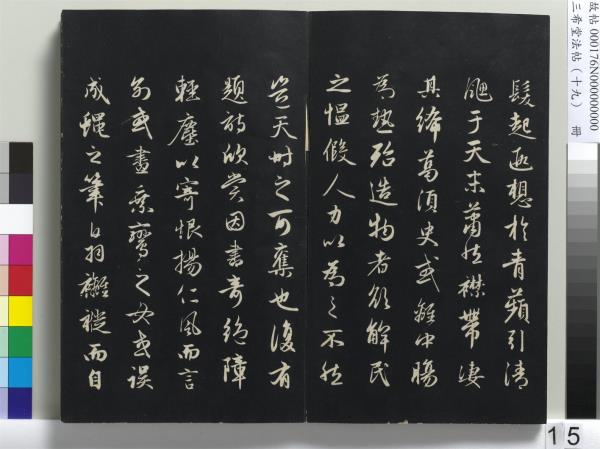 故帖 000176N000000000
三希堂法帖（十九） 冊
髮起遐想於青蘋引清
颸于天末蕭然襟帶凄
其絺葛須臾或離中腸
為熱殆造物者欲解民
之愠假人力以為之不然
豈天時之可奪也復有
題詩欣賞因書奇絕障
輕塵以寄恨揚仁風而言
別或畫乘鸞之女或誤
成蠅之筆羽褷而自
15